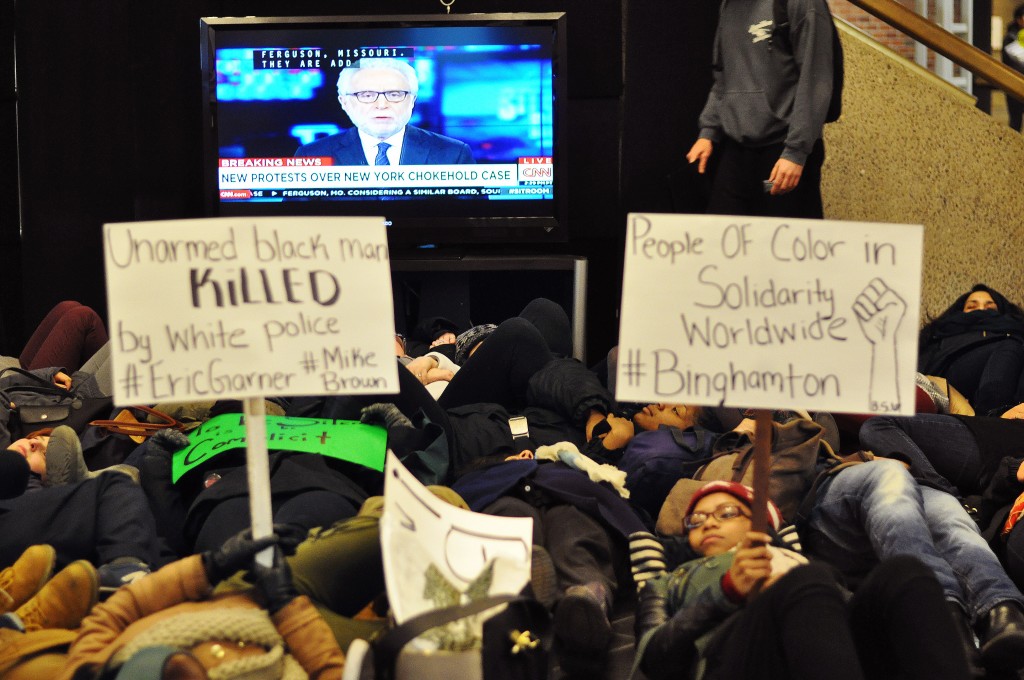 FERGUSON, MISSOURI.
THEY ARE ADD
BREAKING NEWS
LIVE
NEW PROTESTS OVER NEW YORK CHOKEHOLD CASE
CNN
CNN.com
FERGUSON, MO. CONSIDERING A SIMILAR BOARD, SOU
#SITROOM
Unarmed black man
KILLED
by white police
#EricGarner #Mike
Brown
People OF Color in
Solidarity
Worldwide
#Binghamton
B.S.U
To Be Silent
is to be
Complicit